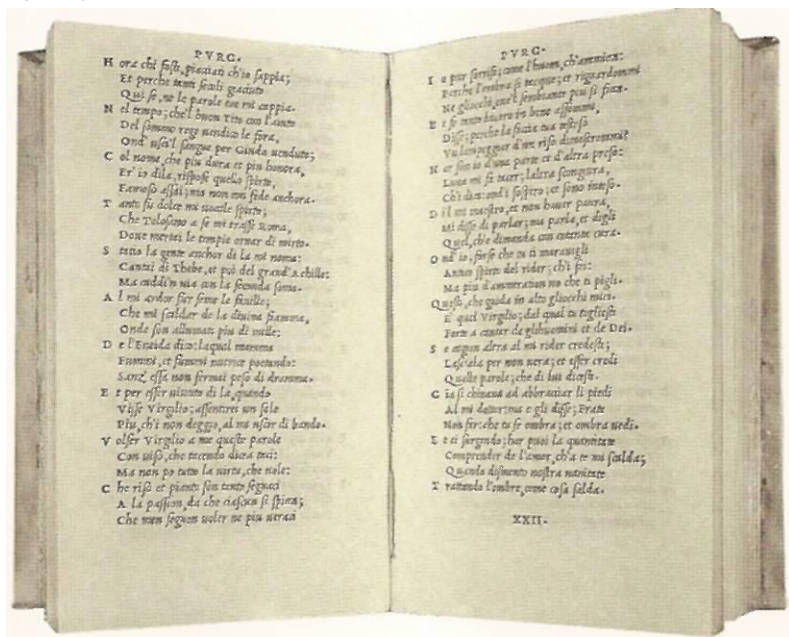 PVRG.
H ora chi fosti, piacciati ch'io sappia;
Et perche tanti secoli giaciuto
Qui se, ne le parole tue mi cappia.
N el tempo; che'l buon Tito con l'aiuto
Del sommo rege uendico le fora,
Ond' usci'l sangue per Giuda uenduto;
C ol nome, che piu dura et piu honora,
Er' io di la, rispose quello spirto,
Famoso assai; ma non con fede anchora.
T anto fu dolce mi uocale spirto;
Che Tolosano a se mi trasse Roma,
Doue mertai le tempie ornar di mirto.
S tatio la gente anchor di la mi noma:
Cantai di Thebe, et poi del grand'Achille:
Ma caddi'n uia con la seconda soma.
A l mi ardor fur seme le fauille;
Che mi scaldar de la diuina fiamma,
Onde son allumati piu di mille:
D e l'Eneida dico: laqual mamma
Fummi, et fummi nutrice poetando:
Sanz' essa non fermai peso di dramma.
E t per esser uiuuto di la, quando
Visse Virgilio; assentirei un sole
Piu, ch'i non deggio, al mi uscir di bando.
V olser Virgilio a me queste parole
Con uiso, che tacendo dicea taci:
Ma non po tutto la uirtu, che uole:
C he riso et pianto son tanto seguaci
A la passion, da che ciascun si spicca;
Che men seguon uoler ne piu ueraci
PVRG.
I o pur sorrisi; come l'huom, ch'ammicca:
Perche l'ombra si tacque; et riguardommi
Ne gliocchi, oue'l sembiante piu si ficca.
E t se tanto lauoro in bene assommi,
Disse; perche la faccia tua testeso
Vn lampeggiar d'un riso dimostrommi?
H or son io d'una parte et d'altra preso:
L'una mi fa tacer; l'altra scongiura,
Ch'i dica: ond'i sospiro; et sono inteso.
D il mi maestro, et non hauer paura,
Mi disse di parlar; ma parla, et digli
Quel, ch'e dimanda con cotanta cura.
O nd' io, forse che tu ti marauigli
Antico spirto del rider, ch'i fei:
Ma piu d'ammiration uo che ti pigli.
Questi, che guida in alto gliocchi miei,
E' quel Virgilio; dal qual tu togliesti
Forte a cantar de glihuomini et de Dei.
S e cagion altra al mi rider credesti;
Lasciala per non uera; et esser credi
Quelle parole; che di lui dicesti.
G ia si chinaua ad abbracciar li piedi
Al mi dottor: ma e gli disse; Frate
Non far: che tu se ombra; et ombra uedi.
E t ei surgendo; hor puoi la quantitate
Comprender de l'amor, ch'a te mi scalda;
Quando dismento nostra uanitate
T rattando l'ombre, come cosa salda.
XXII.